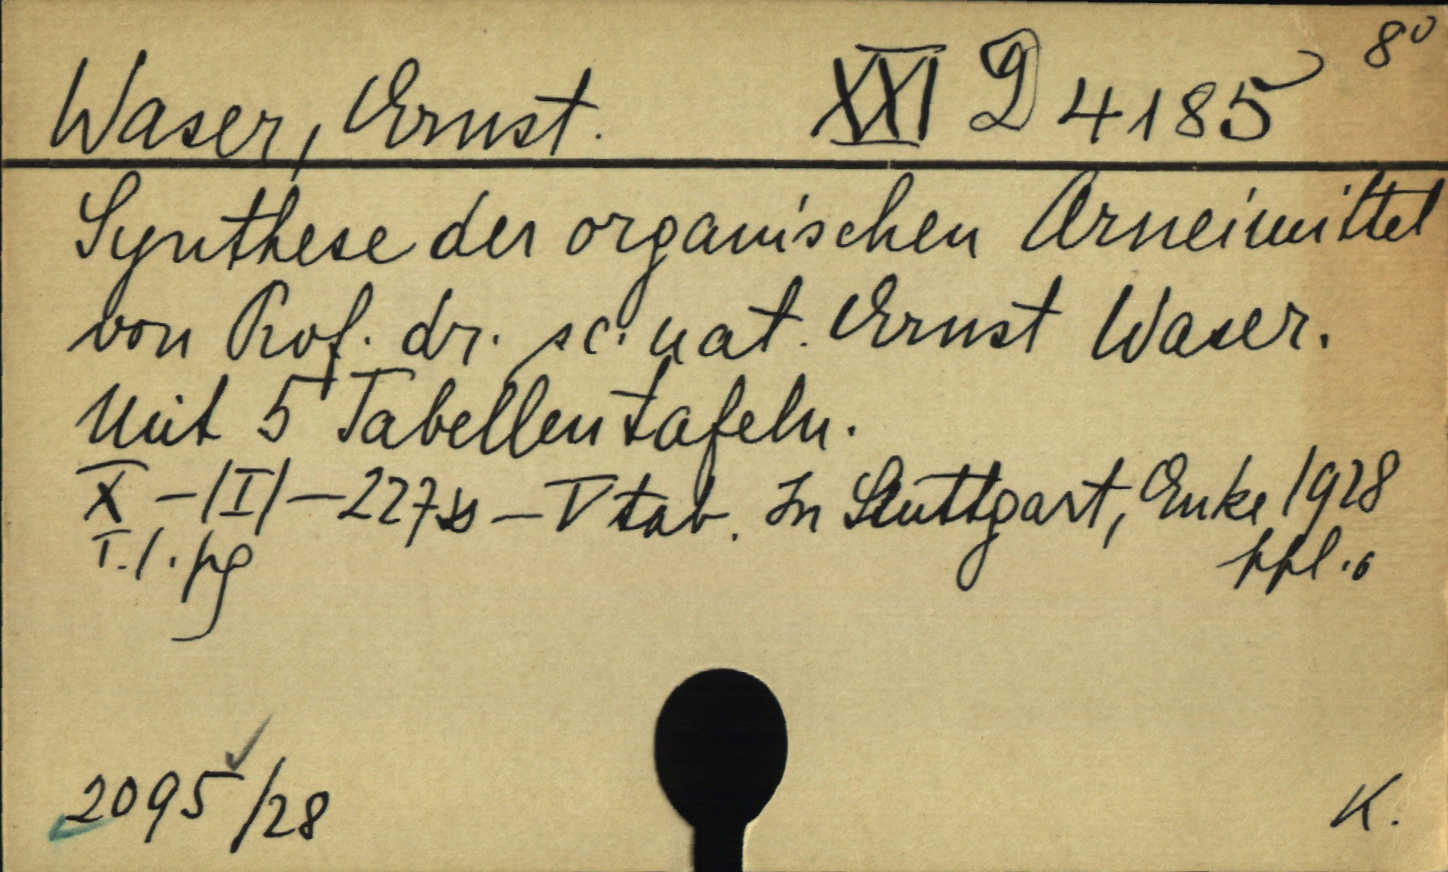 Waser, Ernst. XXI D 4185 8°
Synthese der organischen Arneimittel
von Prof. dr. sc. nat. Ernst Waser.
Mit 5 Tabellentafeln.
X – (I) – 227 – V tab. In Stuttgart, Enke 1928
T. l. pg ppl.
2095/28 K.